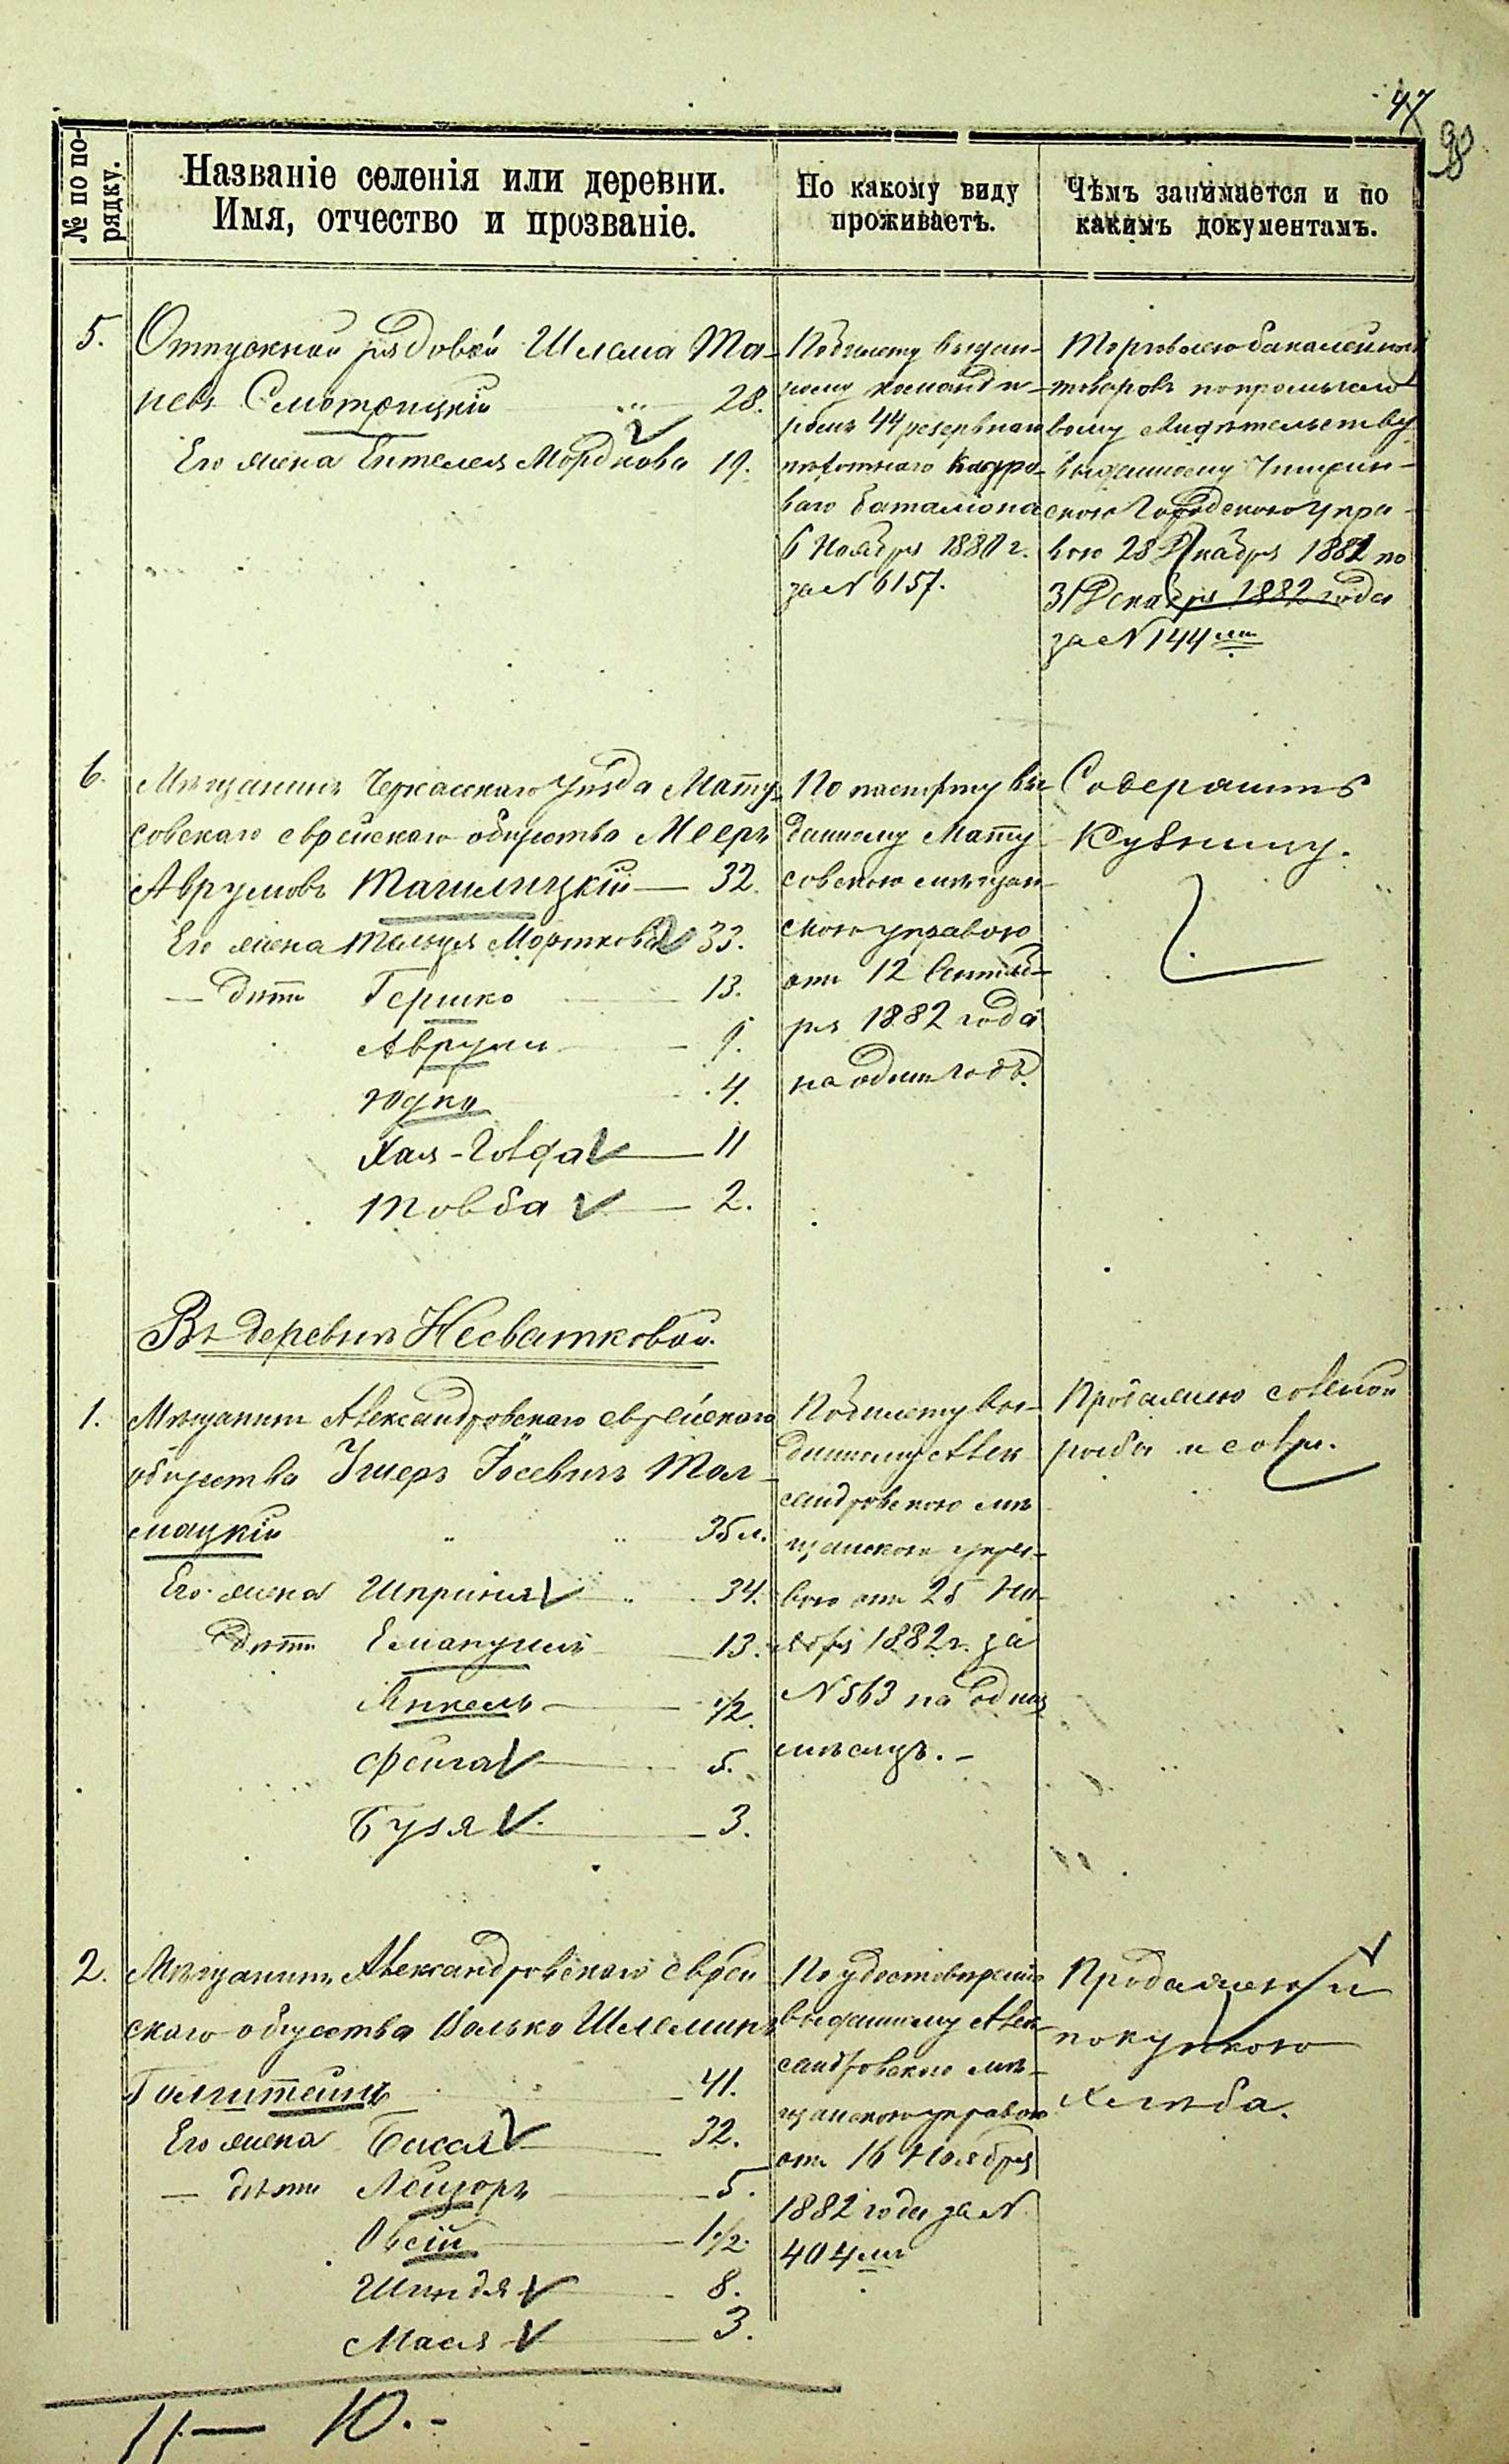 47
38
№ по по-
рядку.
Названіе селенія или деревни.
Имя, отчество и прозваніе.
По какому виду
проживаетъ.
Чѣмъ занимается и по
какимъ документамъ.
5.
Отпускной рядовой Шлема
невъ Смотрицкій 28.
Его жена Ентелея Мордкова 19.
По билету выдан-
ному команди-
ромъ 44 резервнаго
пѣхотнаго кадро-
ваго баталіона
6 Ноября 1880 г.
за № 6157.
Торговлею бакалейныхъ
товаровъ по промысло-
вому свидѣтельству
выданному Чигирин-
скою Городскою Упра-
вою 28 Декабря 1882 по
31 Декабря 1882 года
за № 144мъ
6.
Мѣщанинъ Черкасскаго уѣзда Мату-
совскаго еврейскаго общества Мееръ
Аврумовъ Тагилицкій 32.
Его жена Морткова 33.
— дѣти Гершко 13.
Аврумъ 9.
Юдко 4.
Хая-Говда 11
Товба 2.
По паспорту вы-
данному Мату-
совскою мѣщан-
скою управою
отъ 12 Сентяб-
ря 1882 года
на одинъ годъ.
Содержитъ
Кузницу.
Въ деревнѣ Несватковой.
1.
Мѣщанинъ Александровскаго еврейскаго
общества Ушеръ Іосевичъ Тол-
мацкій 35 л.
Его жена Шпринця 34.
дѣти Емануилъ 13.
Янкель 1/2.
Фейга 5.
Бузя 3.
По билету вы-
данному Алек-
сандровскою мѣ
щанскою упра-
вою отъ 25 Но-
ября 1882 г. за
№ 563 на одинъ
мѣсяцъ. –
Продажею соленой
рыбы и соли.
2.
Мѣщанинъ Александровскаго еврей
скаго общества Волько Шлеминъ
Голштейнъ 41.
Его жена Бася 32.
— дѣти Лейзоръ 5.
Овсій 1 1/2.
Шиндля 8.
Мася 3.
По удостовѣренію
выданному Алек-
сандровскою мѣ-
щанскою управою
отъ 16 Ноября
1882 года за №
404мъ
Продажею и
покупкою
хлѣба.
11 — 10. -